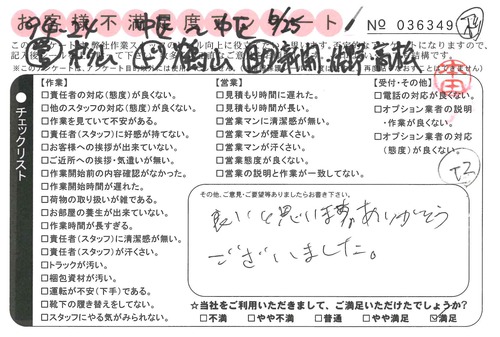 お客様不満足度アンケート
№ 036349
中区 〜 中区 6/25
チェックリスト
【作業】
□責任者の対応(態度)が良くない。
□他のスタッフの対応(態度)が良くない。
□作業を見ていて不安がある。
□責任者(スタッフ)に好感が持てない。
□お客様への挨拶が出来ていない。
□ご近所への挨拶・気遣いが無い。
□作業開始前の内容確認がなかった。
□作業開始時間が遅れた。
□荷物の取り扱いが雑である。
□お部屋の養生が出来ていない。
□作業時間が長すぎる。
□責任者(スタッフ)に清潔感が無い。
□責任者(スタッフ)が汗くさい。
□トラックが汚い。
□梱包資材が汚い。
□運転が不安(下手)である。
□靴下の履き替えをしてない。
□スタッフにやる気がみられない。
【営業】
□見積もり時間に遅れた。
□見積もり時間が長い。
□営業マンに清潔感が無い。
□営業マンが煙草くさい。
□営業マンが汗くさい。
□営業態度が良くない。
□営業の説明と作業が一致してない。
【受付・その他】
□電話の対応が良くない。
□オプション業者の説明
・作業が良くない。
□オプション業者の対応
(態度)が良くない。
その他、ご意見・ご要望等ありましたらお書き下さい。
良いと思います。ありがとう
ございました。
☆当社をご利用いただきまして、ご満足いただけたでしょうか?
□不満 □やや不満 □普通 □やや満足 ☑満足